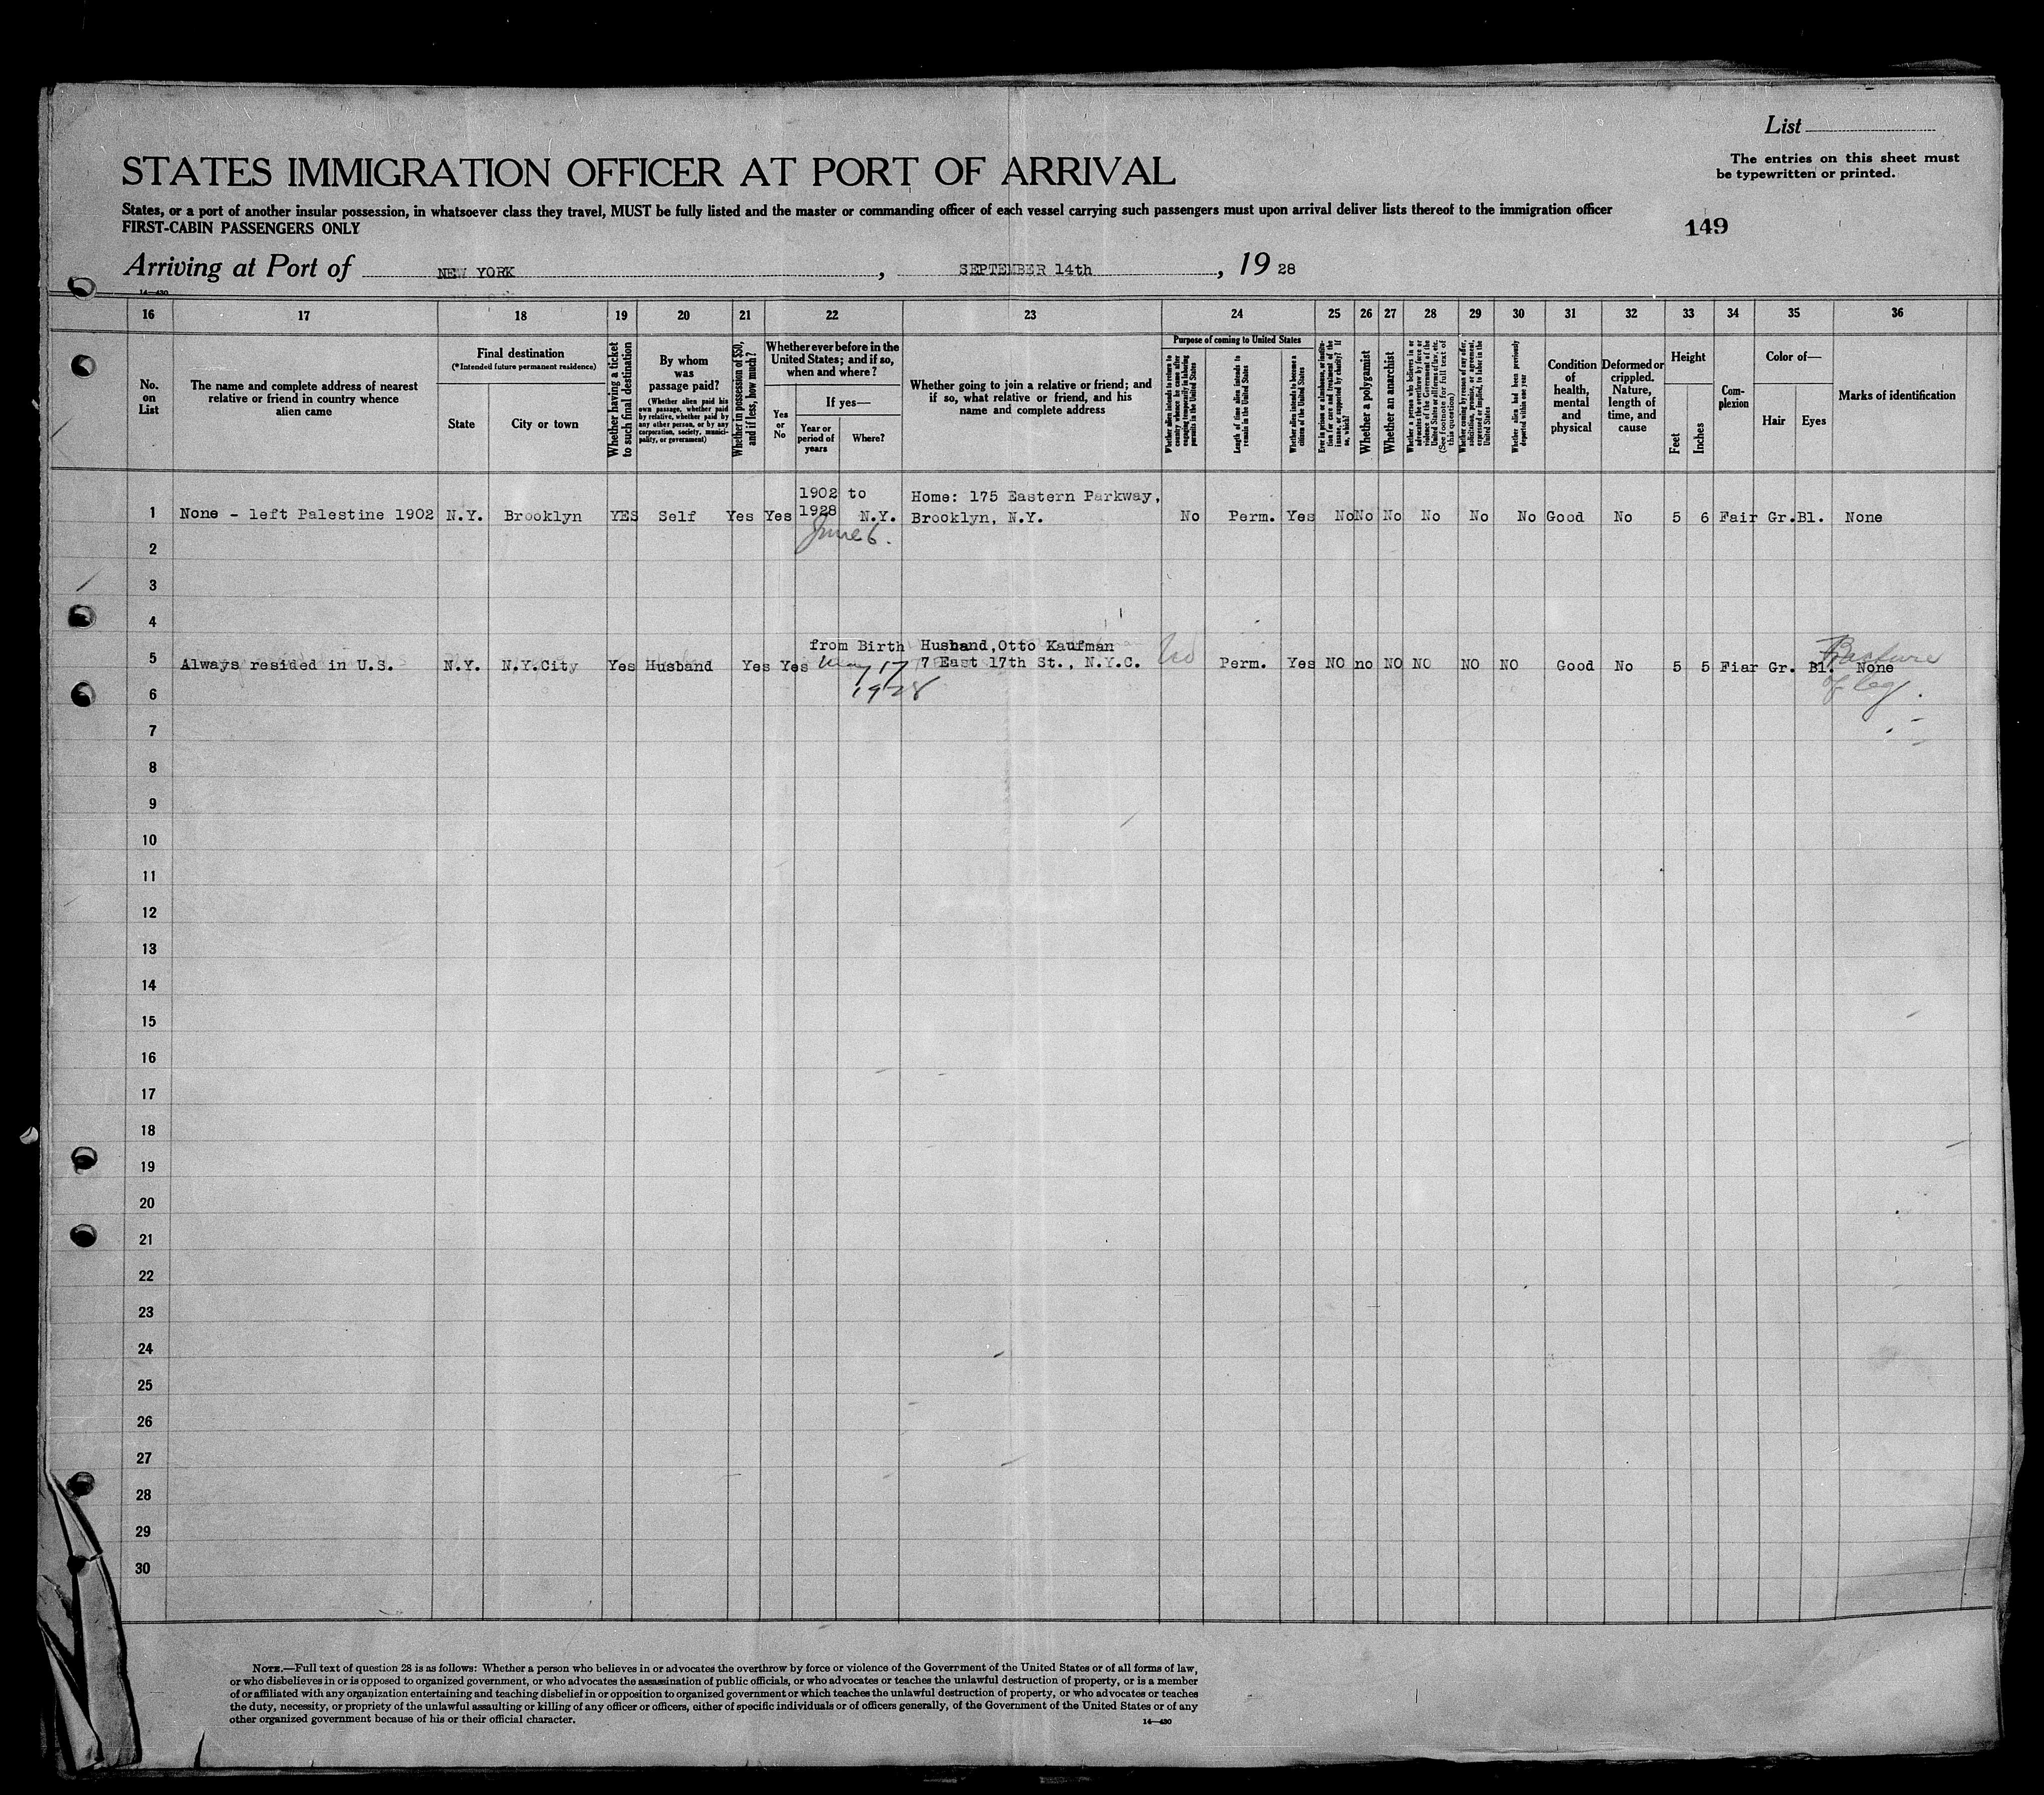 List
The entries on this sheet must
be typewritten or printed.
STATES IMMIGRATION OFFICER AT PORT OF ARRIVAL
States, or a port of another insular possession, in whatsoever class they travel, MUST be fully listed and the master or commanding officer of each vessel carrying such passengers must upon arrival deliver lists thereof to the immigration officer
FIRST-CABIN PASSENGERS ONLY
149
Arriving at Port of NEW YORK, SEPTEMBER 14th, 19 28
14—430
16 17 18 19 20 21 22 23 24 25 26 27 28 29 30 31 32 33 34 35 36
No.
on
List
The name and complete address of nearest
relative or friend in country whence
alien came
Final destination
(*Intended future permanent residence)
State
City or town
Whether having a ticket
to such final destination
By whom
was
passage paid?
(Whether alien paid his
own passage, whether paid
by relative, whether paid by
any other person, or by any
corporation, society, munici-
pality, or government)
Whether in possession of $50,
and if less, how much?
Whether ever before in the
United States; and if so,
when and where?
Yes
or
No
If yes—
Year or
period of
years
Where?
Whether going to join a relative or friend; and
if so, what relative or friend, and his
name and complete address
Purpose of coming to United States
Whether alien intends to return to
country whence he came after
engaging temporarily in laboring
pursuits in the United States
Length of time alien intends to
remain in the United States
Whether alien intends to become a
citizen of the United States
Ever in prison or almshouse, or institu-
tion for care and treatment of the
insane, or supported by charity? If
so, which?
Whether a polygamist
Whether an anarchist
Whether a person who believes in or
advocates the overthrow by force or
violence of the Government of the
United States or all forms of law, etc.
(See footnote for full text of
this question)
Whether coming by reason of any offer,
solicitation, promise, or agreement,
expressed or implied, to labor in the
United States
Whether alien had been previously
deported within one year
Condition
of
health,
mental
and
physical
Deformed or
crippled.
Nature,
length of
time, and
cause
Height
Feet
Inches
Com-
plexion
Color of—
Hair
Eyes
Marks of identification
1902 to Home: 175 Eastern Parkway,
1 None - left Palestine 1902 N.Y. Brooklyn YES Self Yes Yes 1928 N.Y. Brooklyn, N.Y. No Perm. Yes No No No No No No Good No 5 6 Fair Gr. Bl. None
June 6.
2
3
4
from Birth Husband,Otto Kaufman
5 Always resided in U.S. N.Y. N.Y.City Yes Husband Yes Yes May 17 7 East 17th St., N.Y.C. No Perm. Yes NO no NO NO NO NO Good No 5 5 Fiar Gr. Bl. None Fracture
1928 of leg.
6
7
8
9
10
11
12
13
14
15
16
17
18
19
20
21
22
23
24
25
26
27
28
29
30
NOTE.—Full text of question 28 is as follows: Whether a person who believes in or advocates the overthrow by force or violence of the Government of the United States or of all forms of law,
or who disbelieves in or is opposed to organized government, or who advocates the assassination of public officials, or who advocates or teaches the unlawful destruction of property, or is a member
of or affiliated with any organization entertaining and teaching disbelief in or opposition to organized government or which teaches the unlawful destruction of property, or who advocates or teaches
the duty, necessity, or propriety of the unlawful assaulting or killing of any officer or officers, either of specific individuals or of officers generally, of the Government of the United States or of any
other organized government because of his or their official character.
14—430